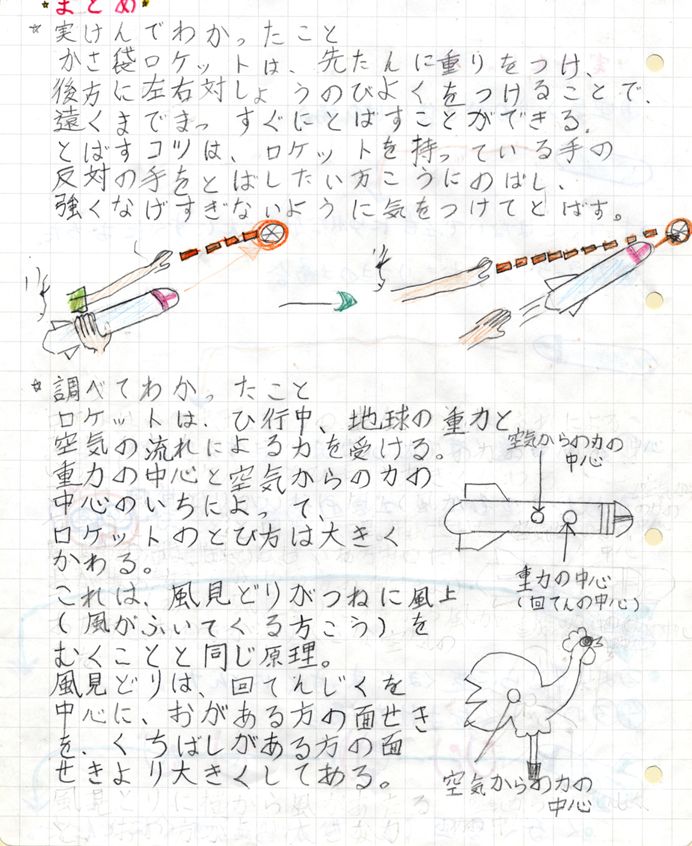 まとめ
☆実けんでわかったこと
かさ袋ロケットは、先たんに重りをつけ、
後方に左右対しょうのびよくをつけることで、
遠くまでまっすぐにとばすことができる。
とばすコツは、ロケットを持っている手の
反対の手をとばしたい方こうにのばし、
強くなげすぎないように気をつけてとばす。
☆調べてわかったこと
ロケットは、ひ行中、地球の重力と
空気の流れによる力を受ける。
重力の中心と空気からの力の
中心のいちによって、
ロケットのとび方は大きく
かわる。
空気からの力の
中心
重力の中心
(回てんの中心)
これは、風見どりがつねに風上
(風がふいてくる方こう)を
むくことと同じ原理。
風見どりは、回てんじくを
中心に、おがある方の面せき
を、くちばしがある方の面
せきより大きくしてある。
空気からの力の
中心